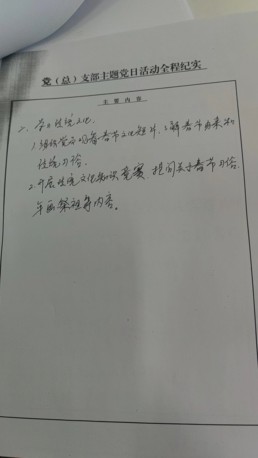 党（总）支部主题党日活动全程纪实
主要内容
二、学习传统文化
1.组织党员观看春节文化短片，了解春节由来和
传统习俗。
2.开展传统文化知识竞赛，提问关于春节习俗、
年画祭祖等内容。